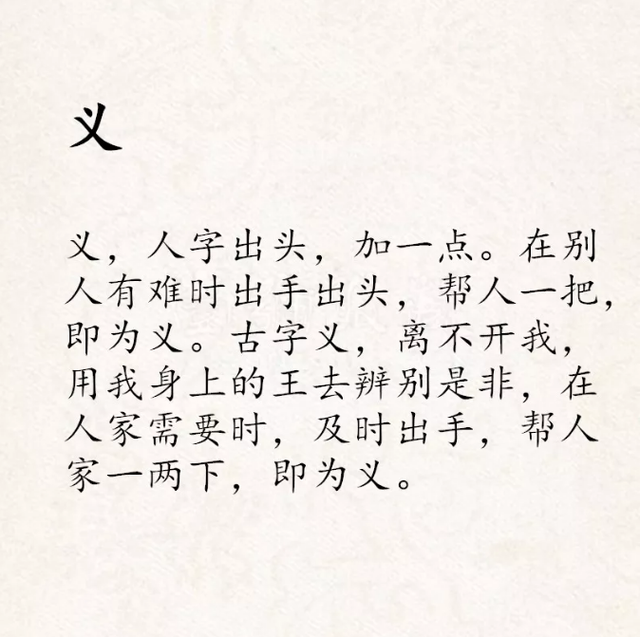 义
义，人字出头，加一点。在别
人有难时出手出头，帮人一把，
即为义。古字义，离不开我，
用我身上的王去辨别是非，在
人家需要时，及时出手，帮人
家一两下，即为义。